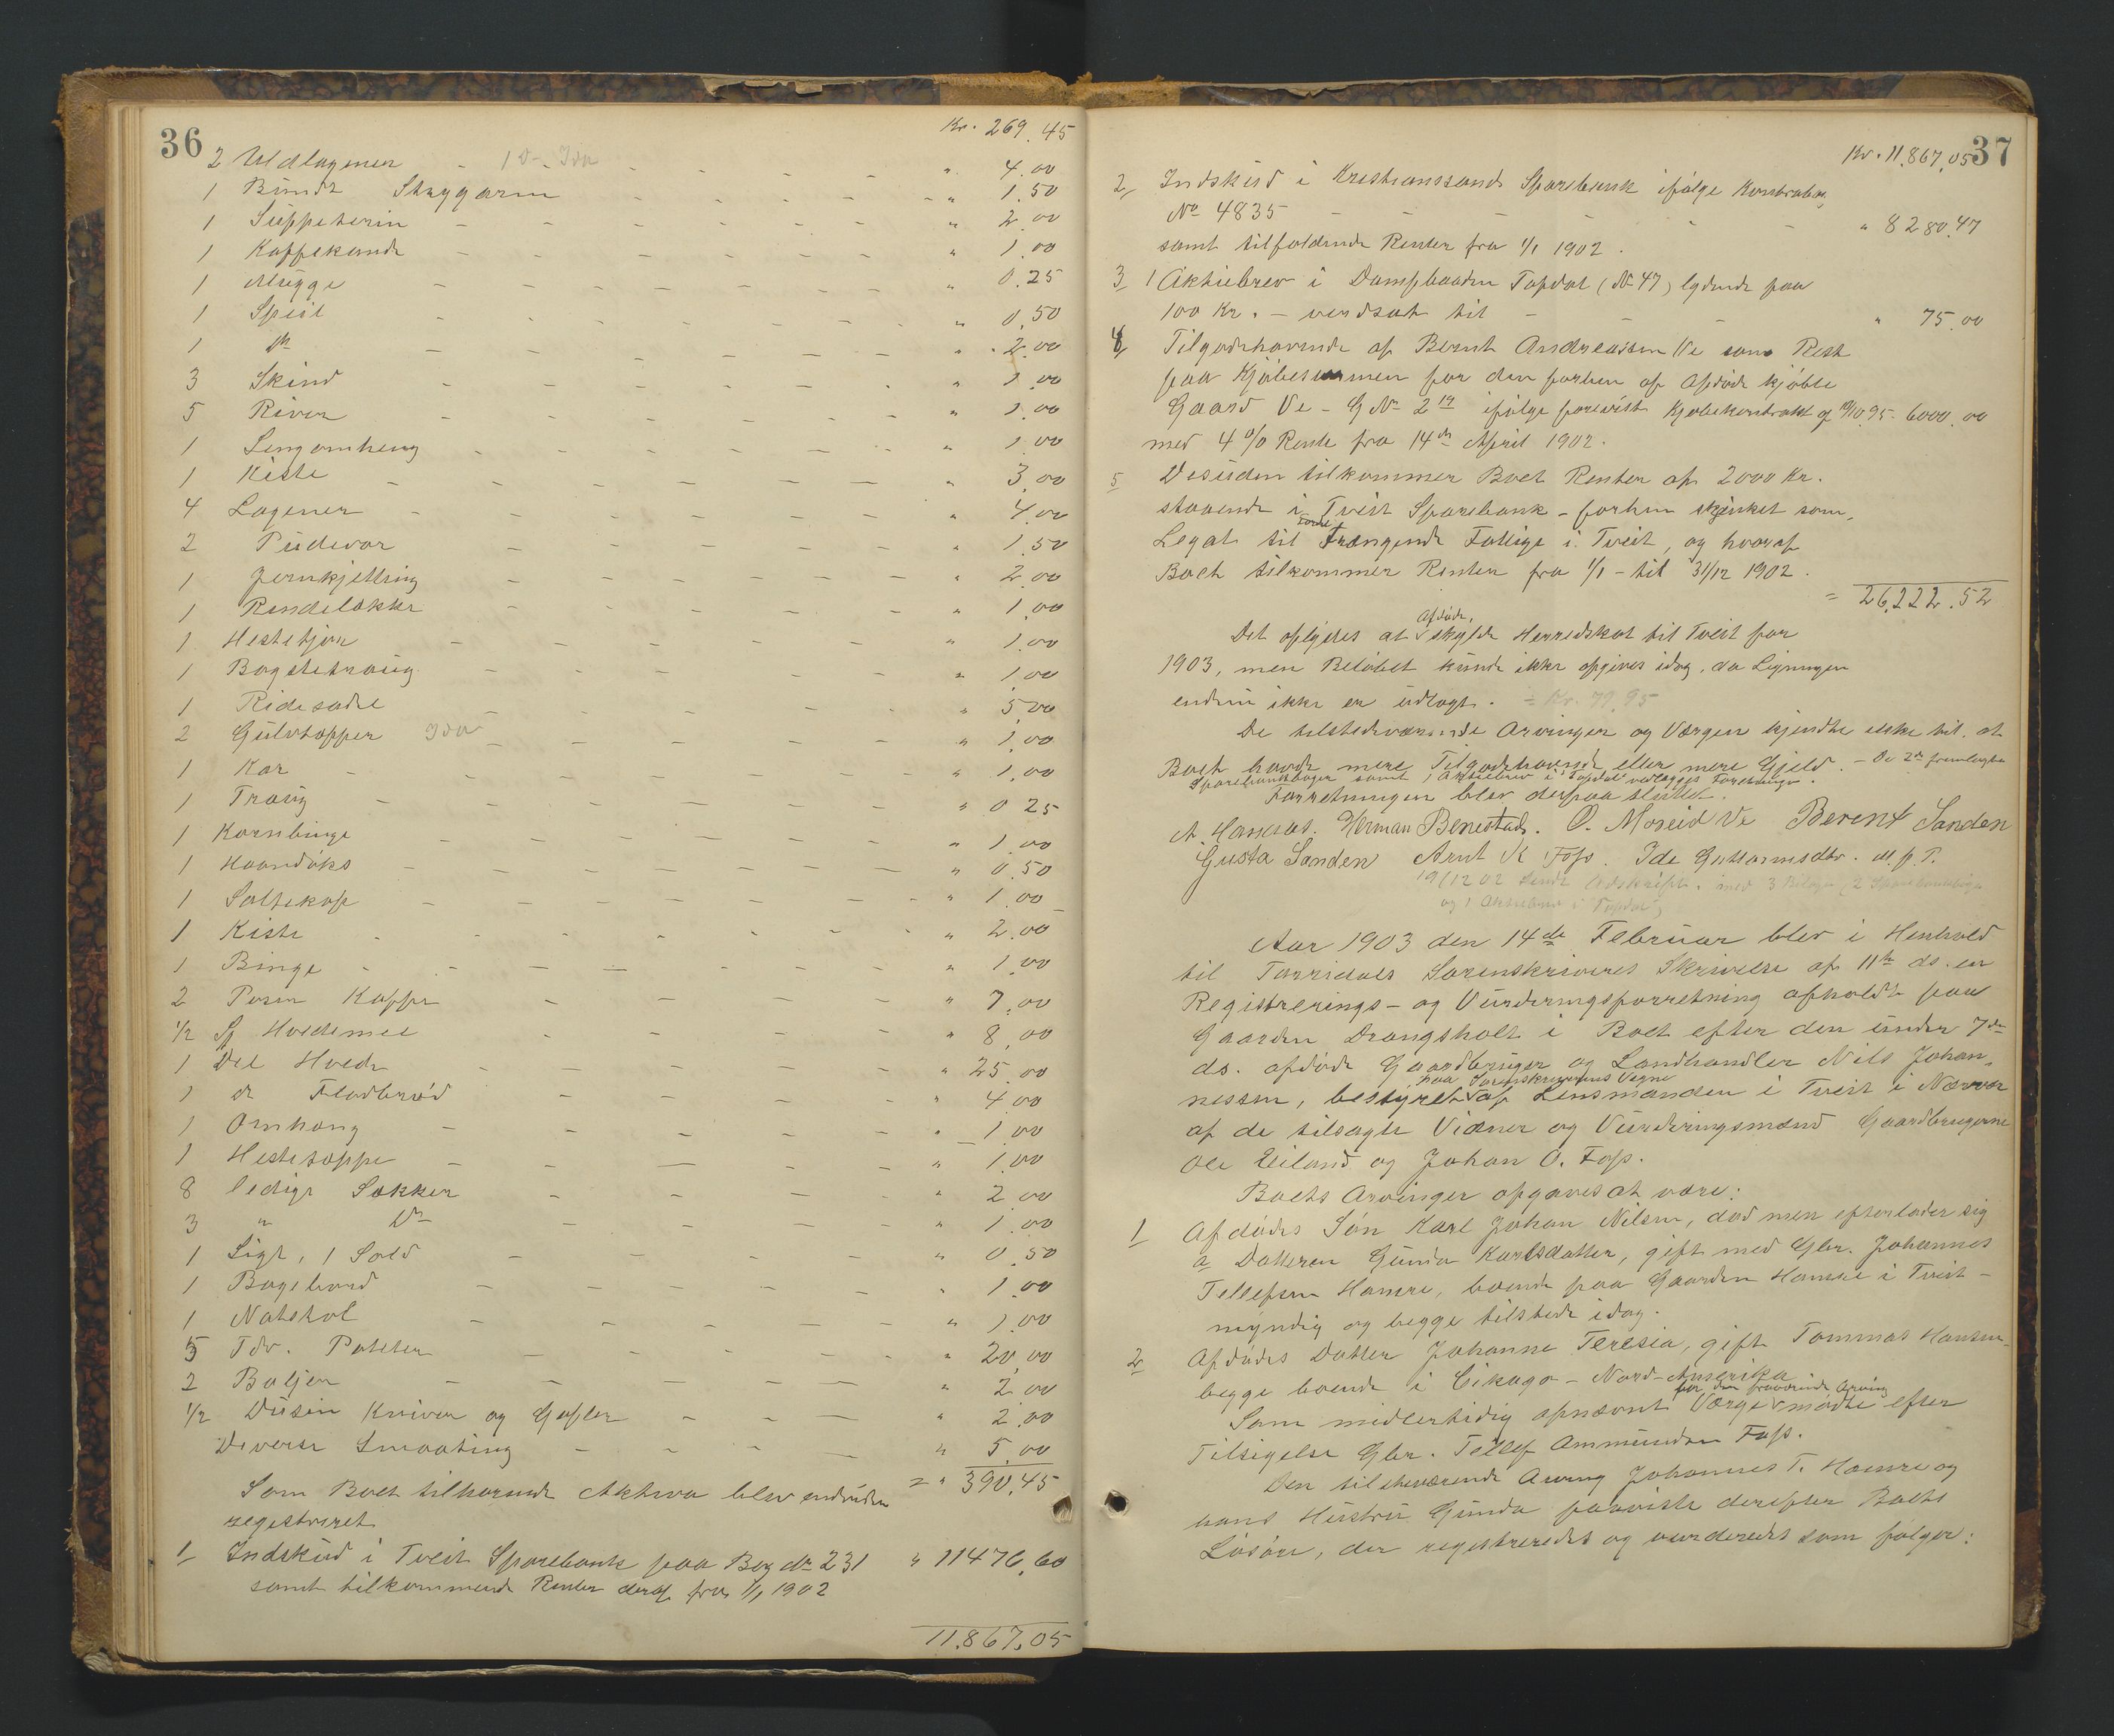 36
Kr. 269.45
2 Uldlagener - 1 D. Ida - - - " 4.00
1 Bundt Strygarn - - - " 1.50
1 Suppeterin - - - " 2.00
1 Kaffekande - - - " 1.00
1 Mugge - - - " 0.25
1 Speil - - - " 0.50
1 do - - - " 2.00
3 Skind - - - " 1.00
5 River - - - " 1.00
1 Sengomheng - - - " 1.00
1 Kiste - - - " 3.00
4 Lagener - - - " 4.00
2 Pudevar - - - " 1.50
1 Jernkjetting - - - " 2.00
1 Rendeløkke - - - " 1.00
1 Hestetjor - - - " 1.00
1 Bagstetraug - - - " 1.00
1 Ridesadel - - - " 5.00
2 Gulvtepper Ida - - - " 1.00
1 Kar - - - " 1.00
1 Traug - - - " 0.25
1 Kornbinge - - - " 1.00
1 Haandøks - - - " 0.50
1 Saltekop - - - " 1.00
1 Kiste - - - " 2.00
1 Binge - - - " 1.00
2 Poser Kaffe - - - " 7.00
1/2 Sj Hvedemel - - - " 8.00
1 Del Hvede - - - " 25.00
1 do Fladbrød - - - " 4.00
1 Omhang - - - " 1.00
1 Hestetoppe - - - " 1.00
8 ledige Sækker - - - " 2.00
3 " Do - - - " 1.00
1 Sigt, 1 Sold - - - " 0.50
1 Bagebord - - - " 1.00
1 Natskot - - - " 1.00
5 Tdr. Poteter - - - " 20.00
2 Baljer - - - " 2.00
1/2 Dusin Kniver og Gafler - - - " 2.00
Diverse Smaating - - - " 5.00
= " 390.45
Som Boet tilhørende Aktiva blev endvidere
registreret
1 Indskud i Tveit Sparebank paa Bog No 231 " 11476.60
samt tilkommende Renter deraf fra 1/1 1902
11.867.05
37
Kr. 11.867.05
2 Indskud i Kristianssands Sparebank ifølge Kontrabog
No 4835 - - - " 8280.47
samt tilfaldende Renter fra 1/1 1902.
3 1 Aktiebrev i Dampbaaden Topdal (No 47) lydende paa
100 Kr. - verdsat til - - - " 75.00
4 Tilgodehavende af Bernt Andreassen Ve som Rest
paa Kjøbesummen for den forhen af Afdøde kjøbte
Gaard Ve - G No 2 ifølge forevist Kjøbekontrakt af 95 - 6000.00
med 4 % Rente fra 14de April 1902.
5 Desuden tilkommer Boet Renter af 2000 Kr.
staaende i Tveit Sparebank - forhen skjenket som
Legat til Trængende Fattige i Tveit, og hvoraf
Boet tilkommer Renter fra 1/1 - til 31/12 1902.
= 26.222.52
Afdøde
Det oplystes at skylde Herredskat til Tveit for
1903, men Beløbet kunde ikke opgives idag, da Ligningen
endnu ikke er udlagt. = Kr. 79.95
De tilstedeværende Arvinger og Værgen kjendte ikke til, at
Boet havde mere Tilgodehavende eller mere Gjeld. - De 2de fremlagte
Sparebankbøger samt 1 Aktiebrev i Topdal vedlægges Forretningen.
Forretningen blev derpaa sluttet.
A. Hanssen. Herman Benestad. O. Moseid Ve Berent Sanden
Gusta Sanden Arnt K Foss. Ide Guttormsdtr. m. p. P.
19/12 02 sendt Udskrift med 3 Bilage (2 Sparebankbøger
og 1 Aktiebrev i Topdal)
Aar 1903 den 14de Februar blev i Henhold
til Torridals Sorenskriveres Skrivelse af 11te ds. en
Registrerings- og Vurderingsforretning afholdt paa
Gaarden Drangsholt i Boet efter den under 7de
ds. afdøde Gaardbruger og Landhandler Nils Johan-
paa Sorenskriverens Vegne
nessen, bestyret af Lensmanden i Tveit i Nærvær
af de tilsagte Vidner og Vurderingsmænd Gaardbrugerne
Ole Eiland og Johan O. Foss.
Boets Arvinger opgaves at være:
1 Afdødes Søn Karl Johan Nilsen, død men efterlader sig
a Datteren Gunda Karlsdatter, gift med Gbr. Johannes
Tellefsen Hamre, boende paa Gaarden Hamre i Tveit -
myndig og begge tilstede idag.
2 Afdødes Datter Johanne Teresia, gift Tommas Hansen
begge boende i Cikago - Nord-Amerika
for den fraværende Arving
Som midlertidig opnævnt Værge mødte efter
Tilsigelse Gbr. Tellef Ommundsen Foss.
Den tilstedeværende Arving Johannes T. Hamre og
hans Hustru Gunda paaviste derefter Boets
Løsøre, der registreredes og vurderedes som følger: